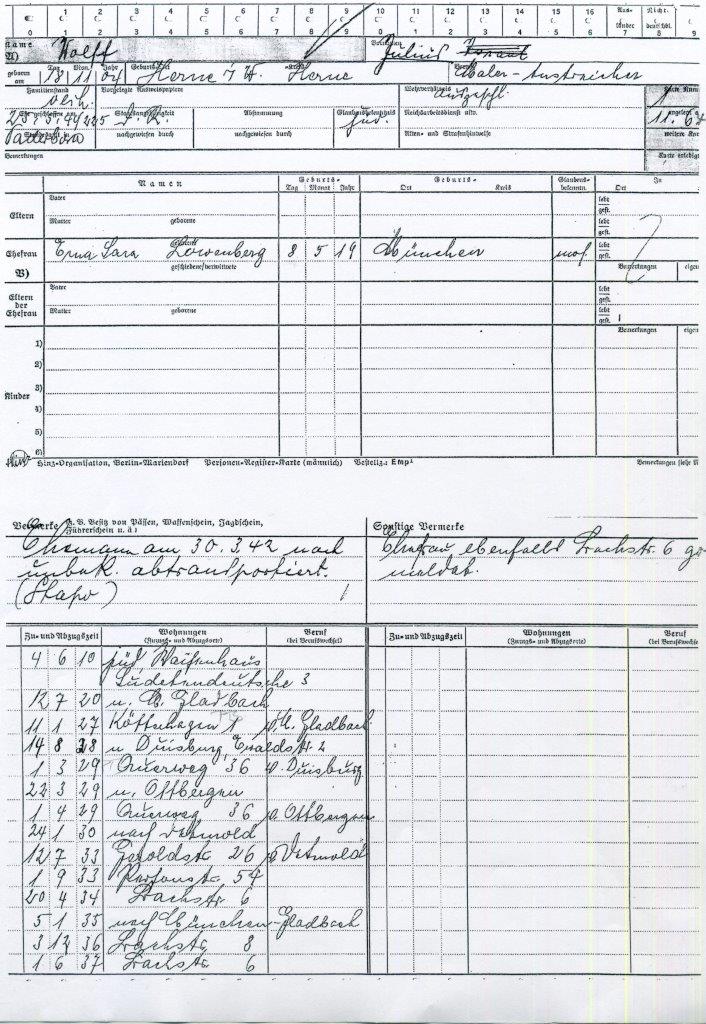 0 1 2 3 4 5 6 7 8 9 10 11 12 13 14 15 16 Aus- Nicht-
€ C C C C C C C C C 0 1 2 3 4 5 6 länder deutschbl.
0 1 2 3 4 5 6 7 8 9 C C C C C C C 7 8 9
Name Wolff Julius Israel
A)
geboren am Tag Mon. Jahr Geburtsort Kreis Beruf
13 11 04 Herne i/W. Herne Maler-Anstreicher
Familienstand Vorgelegte Ausweispapiere Wehrverhältnis Karte Num
verh. Ausgeschl. 1
Staatsangehörigkeit Abstammung Glaubensbekenntnis Reichsarbeitsdienst usw. angelegt a
D. R. jüd. 11. 6
Paderborn nachgewiesen durch nachgewiesen durch Akten- und Strafenhinweise weitere Kar
Bemerkungen Karte erledigt
Namen Geburts- Geburts- Glaubens- In
Tag Monat Jahr Ort Kreis bekenntn. Ort
Eltern Vater lebt
gest.
Mutter geborene lebt
gest.
Ehefrau Erna Sara geborene Löwenberg 8 5 19 München mos. lebt
gest.
B) geschiedene/verwitwete Bemerkungen eigen
Eltern der Ehefrau Vater lebt
gest.
Mutter geborene lebt
gest.
Bemerkungen eigen
Kinder
1)
2)
3)
4)
5)
6)
Hinz Hinz-Organisation, Berlin-Mariendorf Personen-Register-Karte (männlich) Bestellz.: Emp¹ Bemerkungen siehe
Vermerke z. B. Besitz von Pässen, Waffenschein, Jagdschein, Führerschein u. ä: Sonstige Vermerke
Ehemann am 30.3.42 nach Ehefrau ebenfalls Bachstr. 6 ge-
unbek. abtransportiert. meldet.
(Stapo)
Zu- und Abzugszeit Wohnungen Beruf Zu- und Abzugszeit Wohnungen Beruf
(Zuzugs- und Abzugsorte) (bei Berufswechsel) (Zuzugs- und Abzugsorte) (bei Berufswechsel
4 6 10 jüd Waisenhaus
Sudetendeutsche 3
12 7 20 n. M. Gladbach
11 1 27 1 v. M. Gladbach
14 8 28 n Duisburg, Ewaldstr. 2
1 3 29 Querweg 36 v. Duisburg
22 3 29 n. Ottbergen
1 4 29 Querweg 36 v. Ottbergen
24 1 30 nach Detmold
12 7 33 Geroldstr 26 v Detmold
1 9 33 54
20 4 34 Bachstr 6
5 1 35 nach München-Gladbach
3 12 36 Bachstr 8
1 6 37 Bachstr 6